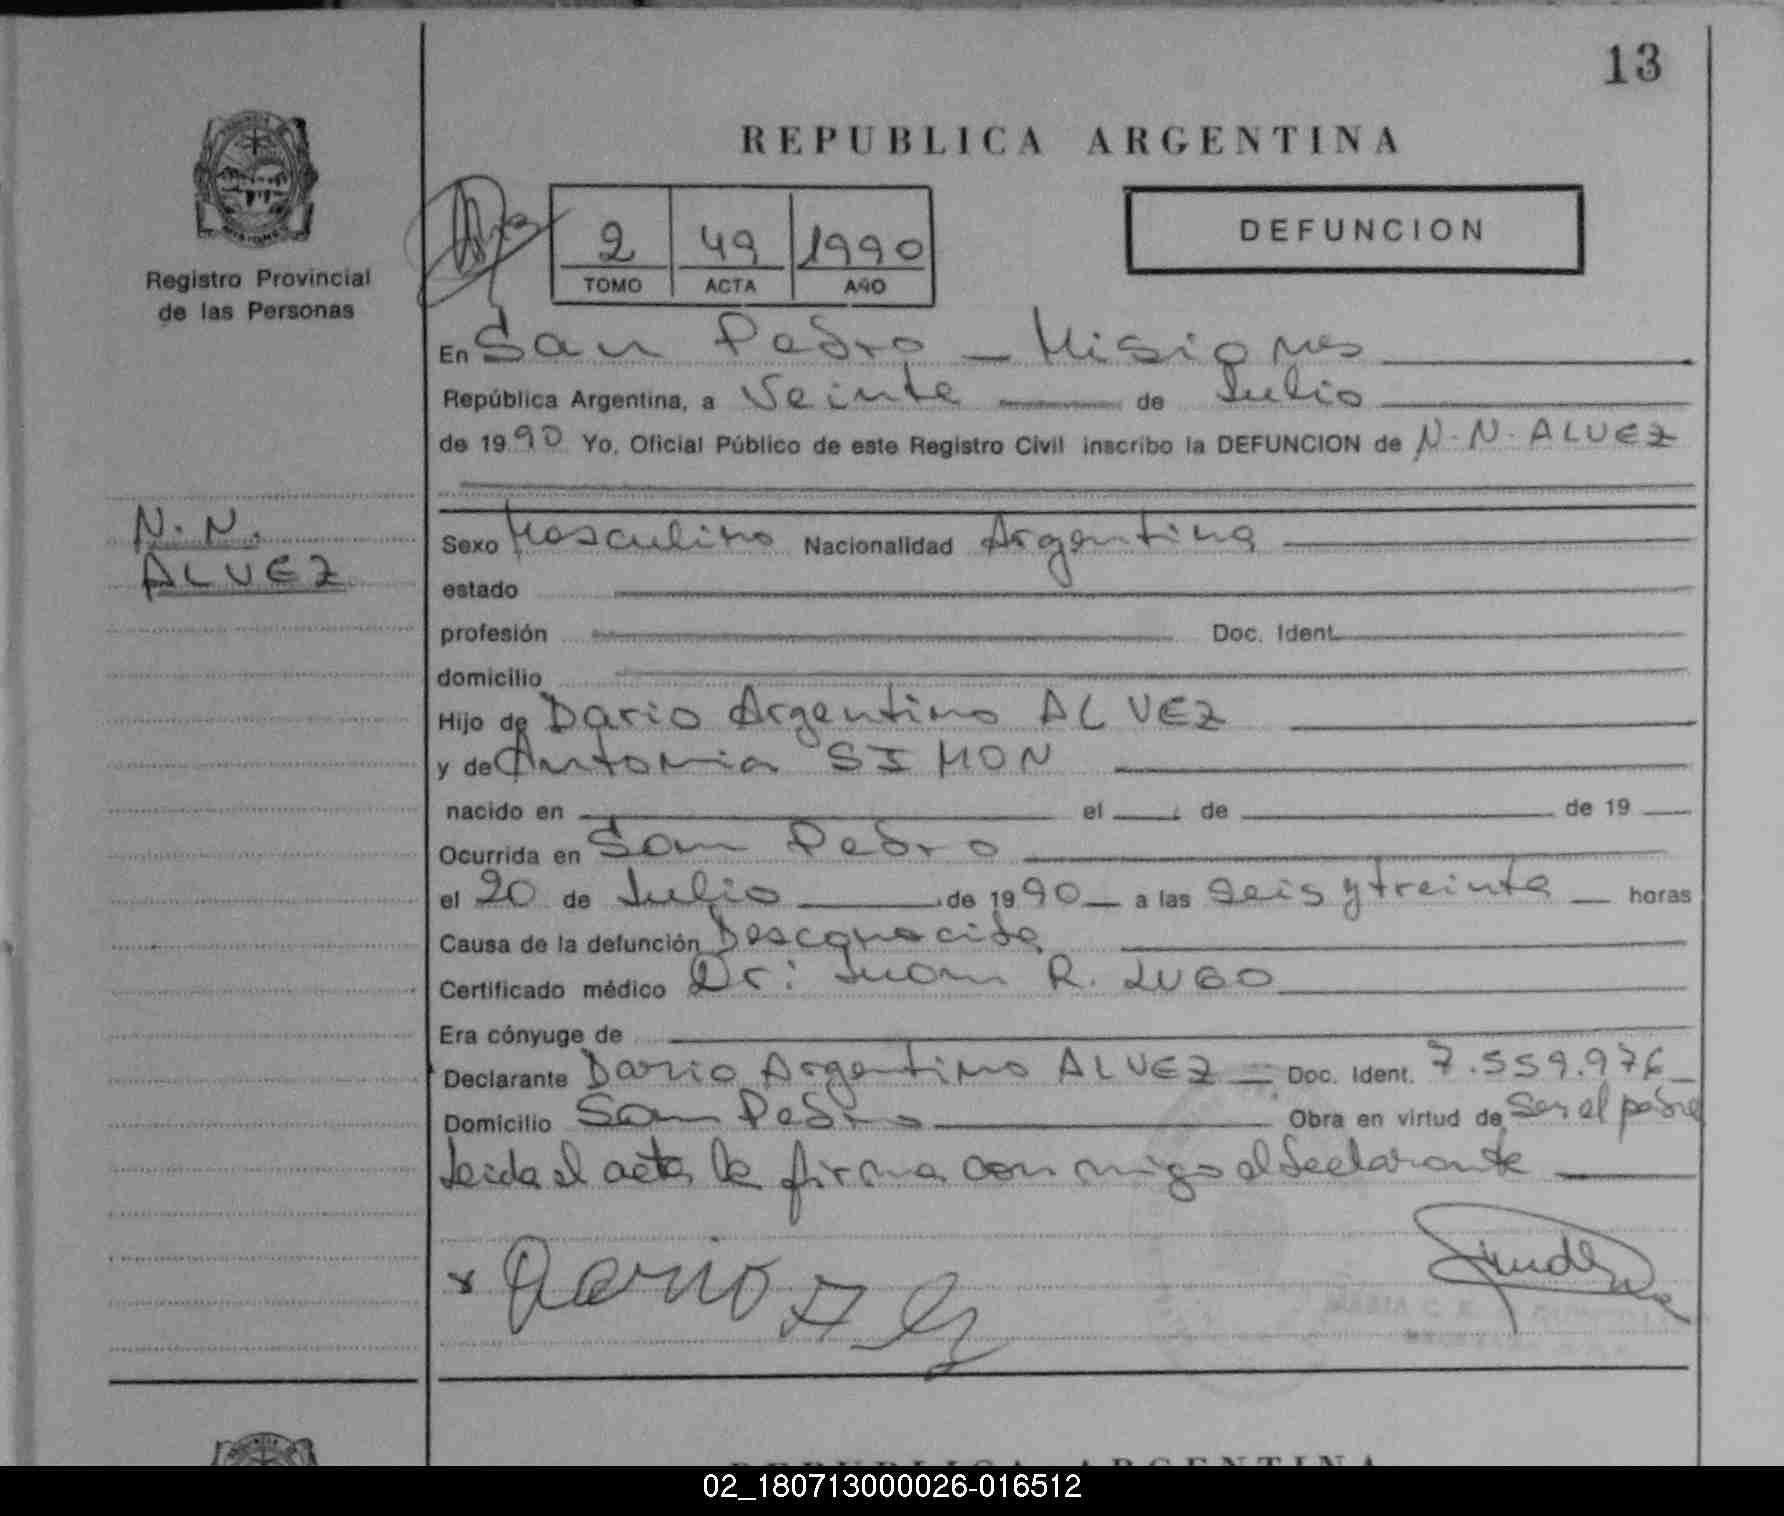 13
REPUBLICA ARGENTINA
DEFUNCION
2 49 1990
TOMO ACTA AÑO
Registro Provincial
de las Personas
En San Pedro - Misiones
República Argentina, a Veinte de Julio
de 1990 Yo, Oficial Público de este Registro Civil inscribo la DEFUNCION de N.N. ALVEZ
N.N.
ALVEZ
Sexo Masculino Nacionalidad Argentina
estado
profesión Doc. Ident.
domicilio
Hijo de Dario Argentino ALVEZ
y de Antonia SIMON
nacido en el de de 19
Ocurrida en San Pedro
el 20 de Julio de 1990 a las seis y treinta horas
Causa de la defunción Desconocida
Certificado médico Dr: Juan R. LUGO
Era cónyuge de
Declarante Dario Argentino ALVEZ Doc. Ident. 7.559.976
Domicilio San Pedro Obra en virtud de ser el padre
Leida el acta la firma con migo el declarante
x Dario
MARIA C.
REPUBLICA ARGENTINA
02_180713000026-016512